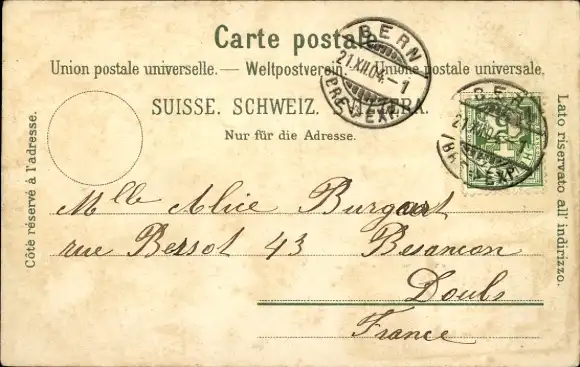 Carte postale.
Union postale universelle. — Weltpostverein. — Unione postale universale.
SUISSE. SCHWEIZ. SVIZZERA.
Nur für die Adresse.
Côté réservé à l'adresse.
Lato riservato all' indirizzo.
BERN
21.XII.04.–1
BRF. EXP.
BERN
BRF. EXP.
Mlle Alice Burgart
rue Bersot 43 Besancon
Doubs
France